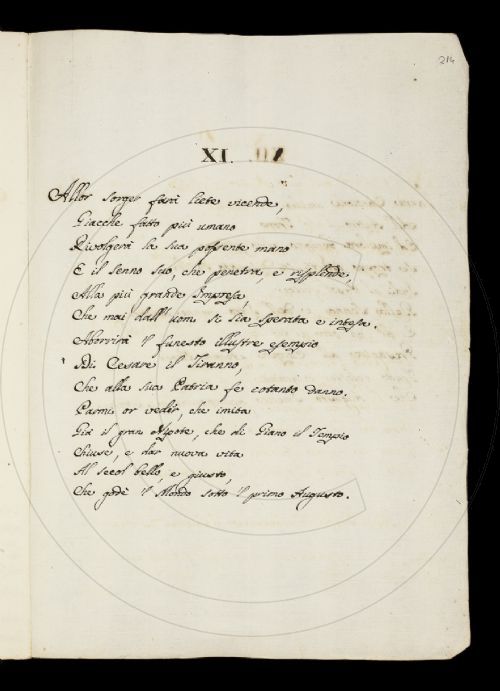 214
XI.
Allor sorger farà liete vicende,
Giacche fatto più umano
Rivolgerà la sua possente mano
E il senno suo, che penetra, e risplende,
Alla più grande Impresa,
Che mai dall' uom si sia sperata e intesa.
Aborrirà il funesto illustre esempio
Di Cesare il Tiranno,
Che alla sua Patria fe cotanto danno.
Parmi or veder, che imita
Già il gran Nipote, che di Giano il Tempio
Chiuse, e dar nuova vita
Al secol bello, e giusto,
Che godè il Mondo sotto il primo Augusto.